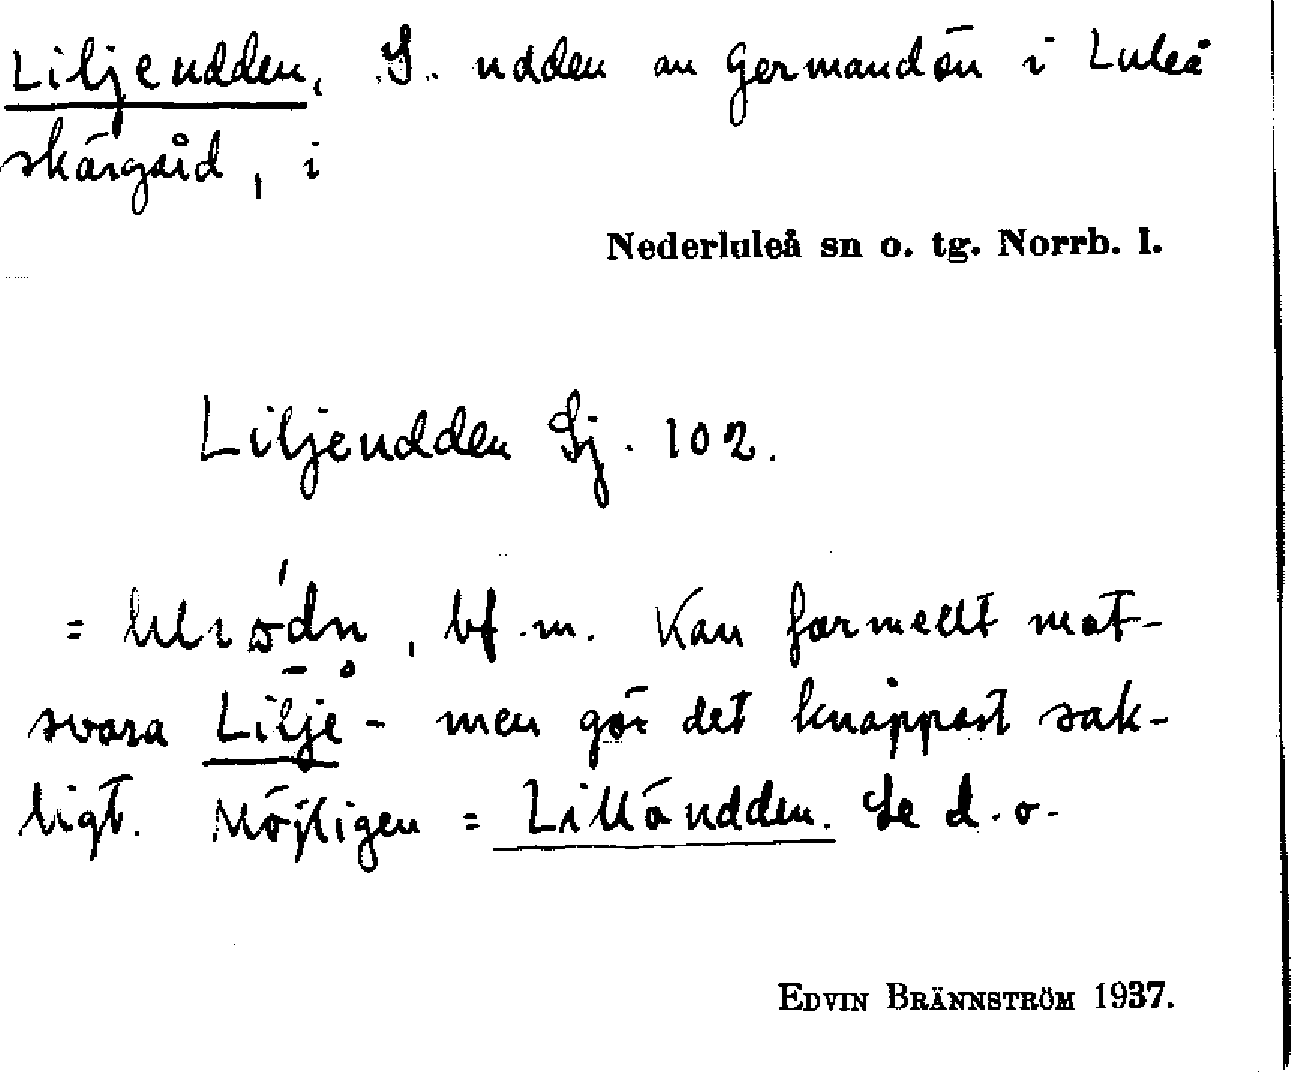 Liljeudden, S. udden av Germandön i Luleå
skärgård, i
Nederluleå sn o. tg. Norrb. l.
Liljeudden Sj. 102.
= , bf. m. Kan formellt mot-
svara Lilje- men gör det knappast sak-
ligt. Möjligen = Lillöudden. Se d. o.
EDVIN BRÄNNSTRÖM 1937.